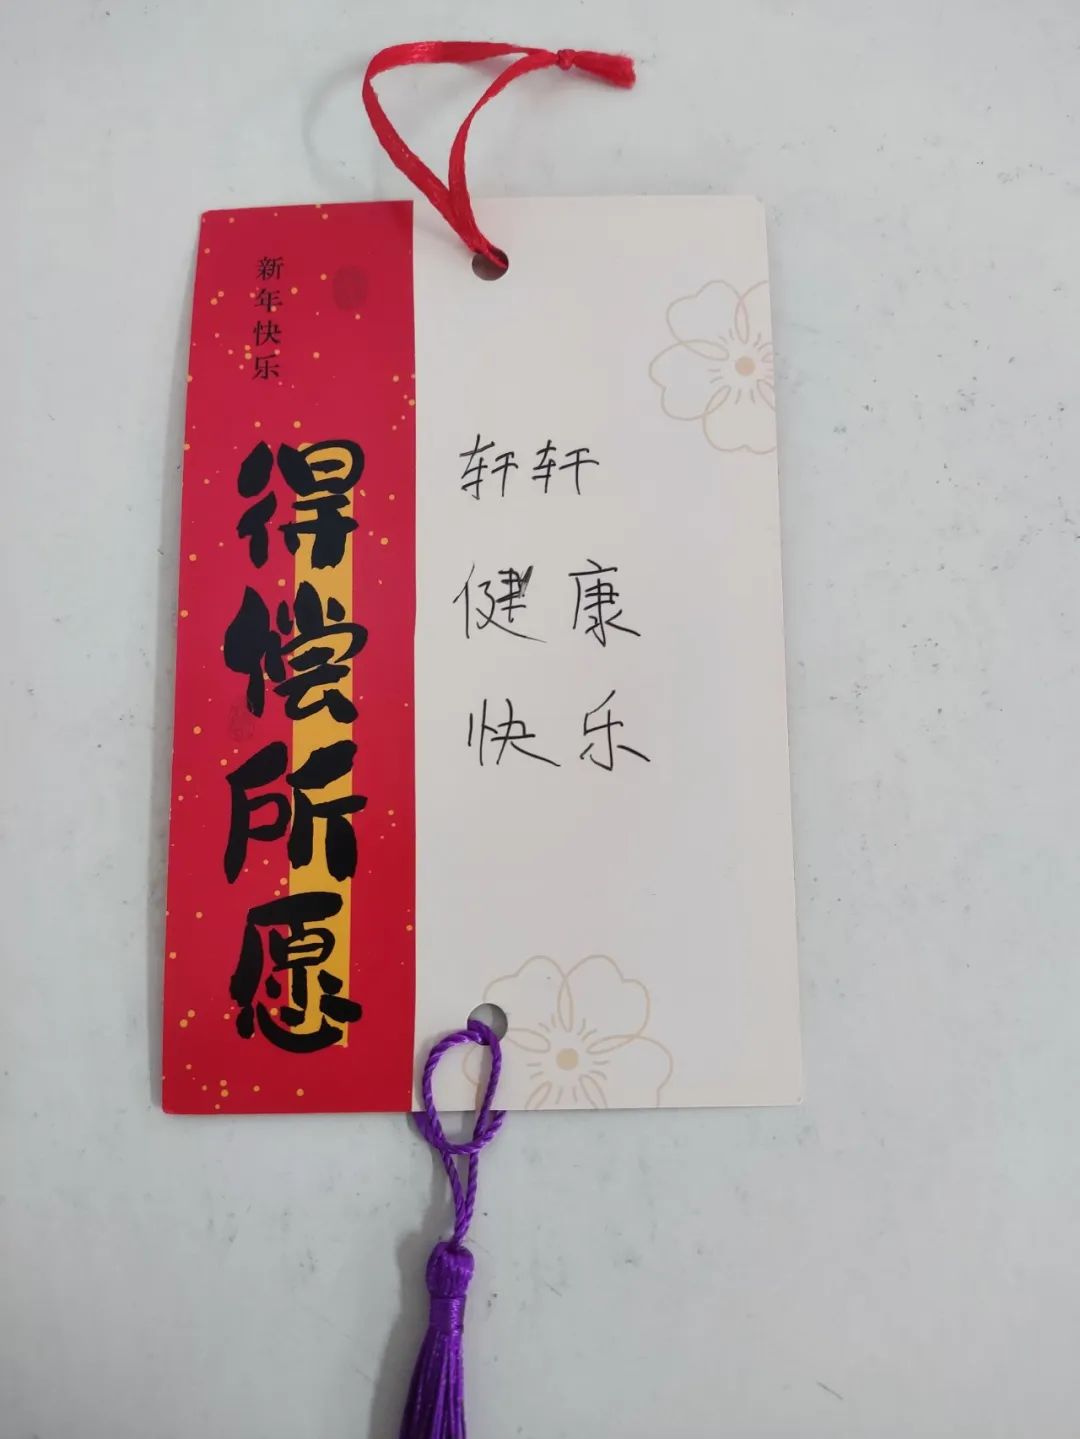 新年快乐
得偿所愿
轩轩
健康
快乐